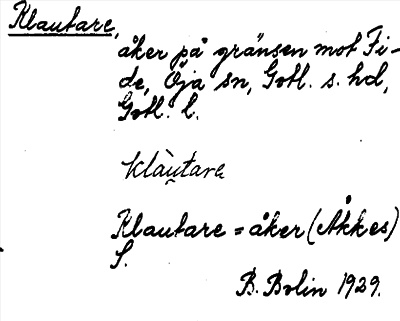 Klautare,
åker på gränsen mot Fi-
de, Öja sn, Gotl. s. hd,
Gotl. l.
klàu̯tarα
Klautare = åker (Åkkes)
S.
B. Bolin 1929.